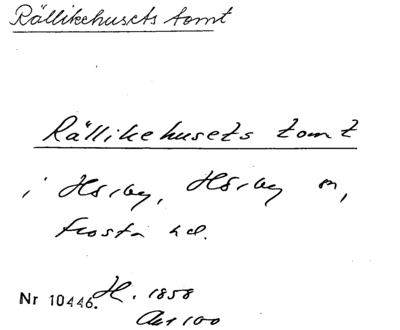 Rällikehusets tomt
Rällikehusets tomt
i Hörby, Hörby sn,
Frosta hd.
Nr 10446. H. 1858
Akt 100